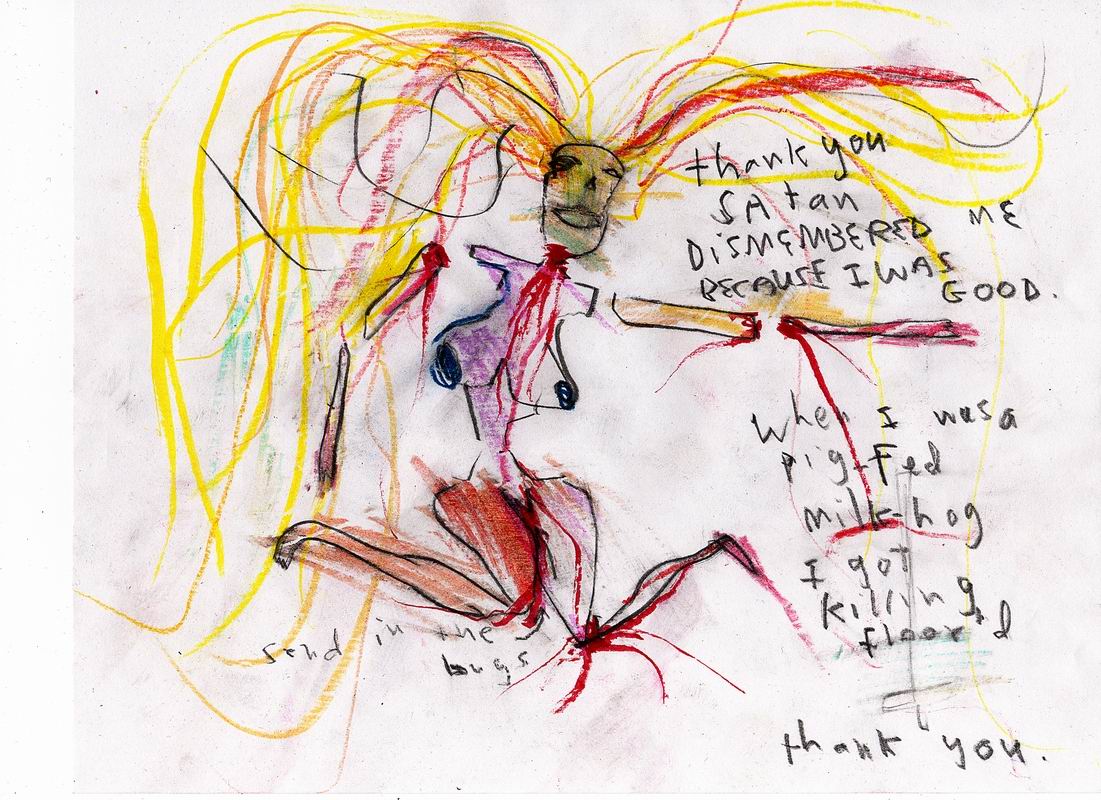 thank you
SAtan
DiSMEMBERED ME
BECAUSE I WAS
GOOD.
When I was a
pig-Fed
milk-hog
I got
Killing
floor'd
send in the
bugs
thank you.